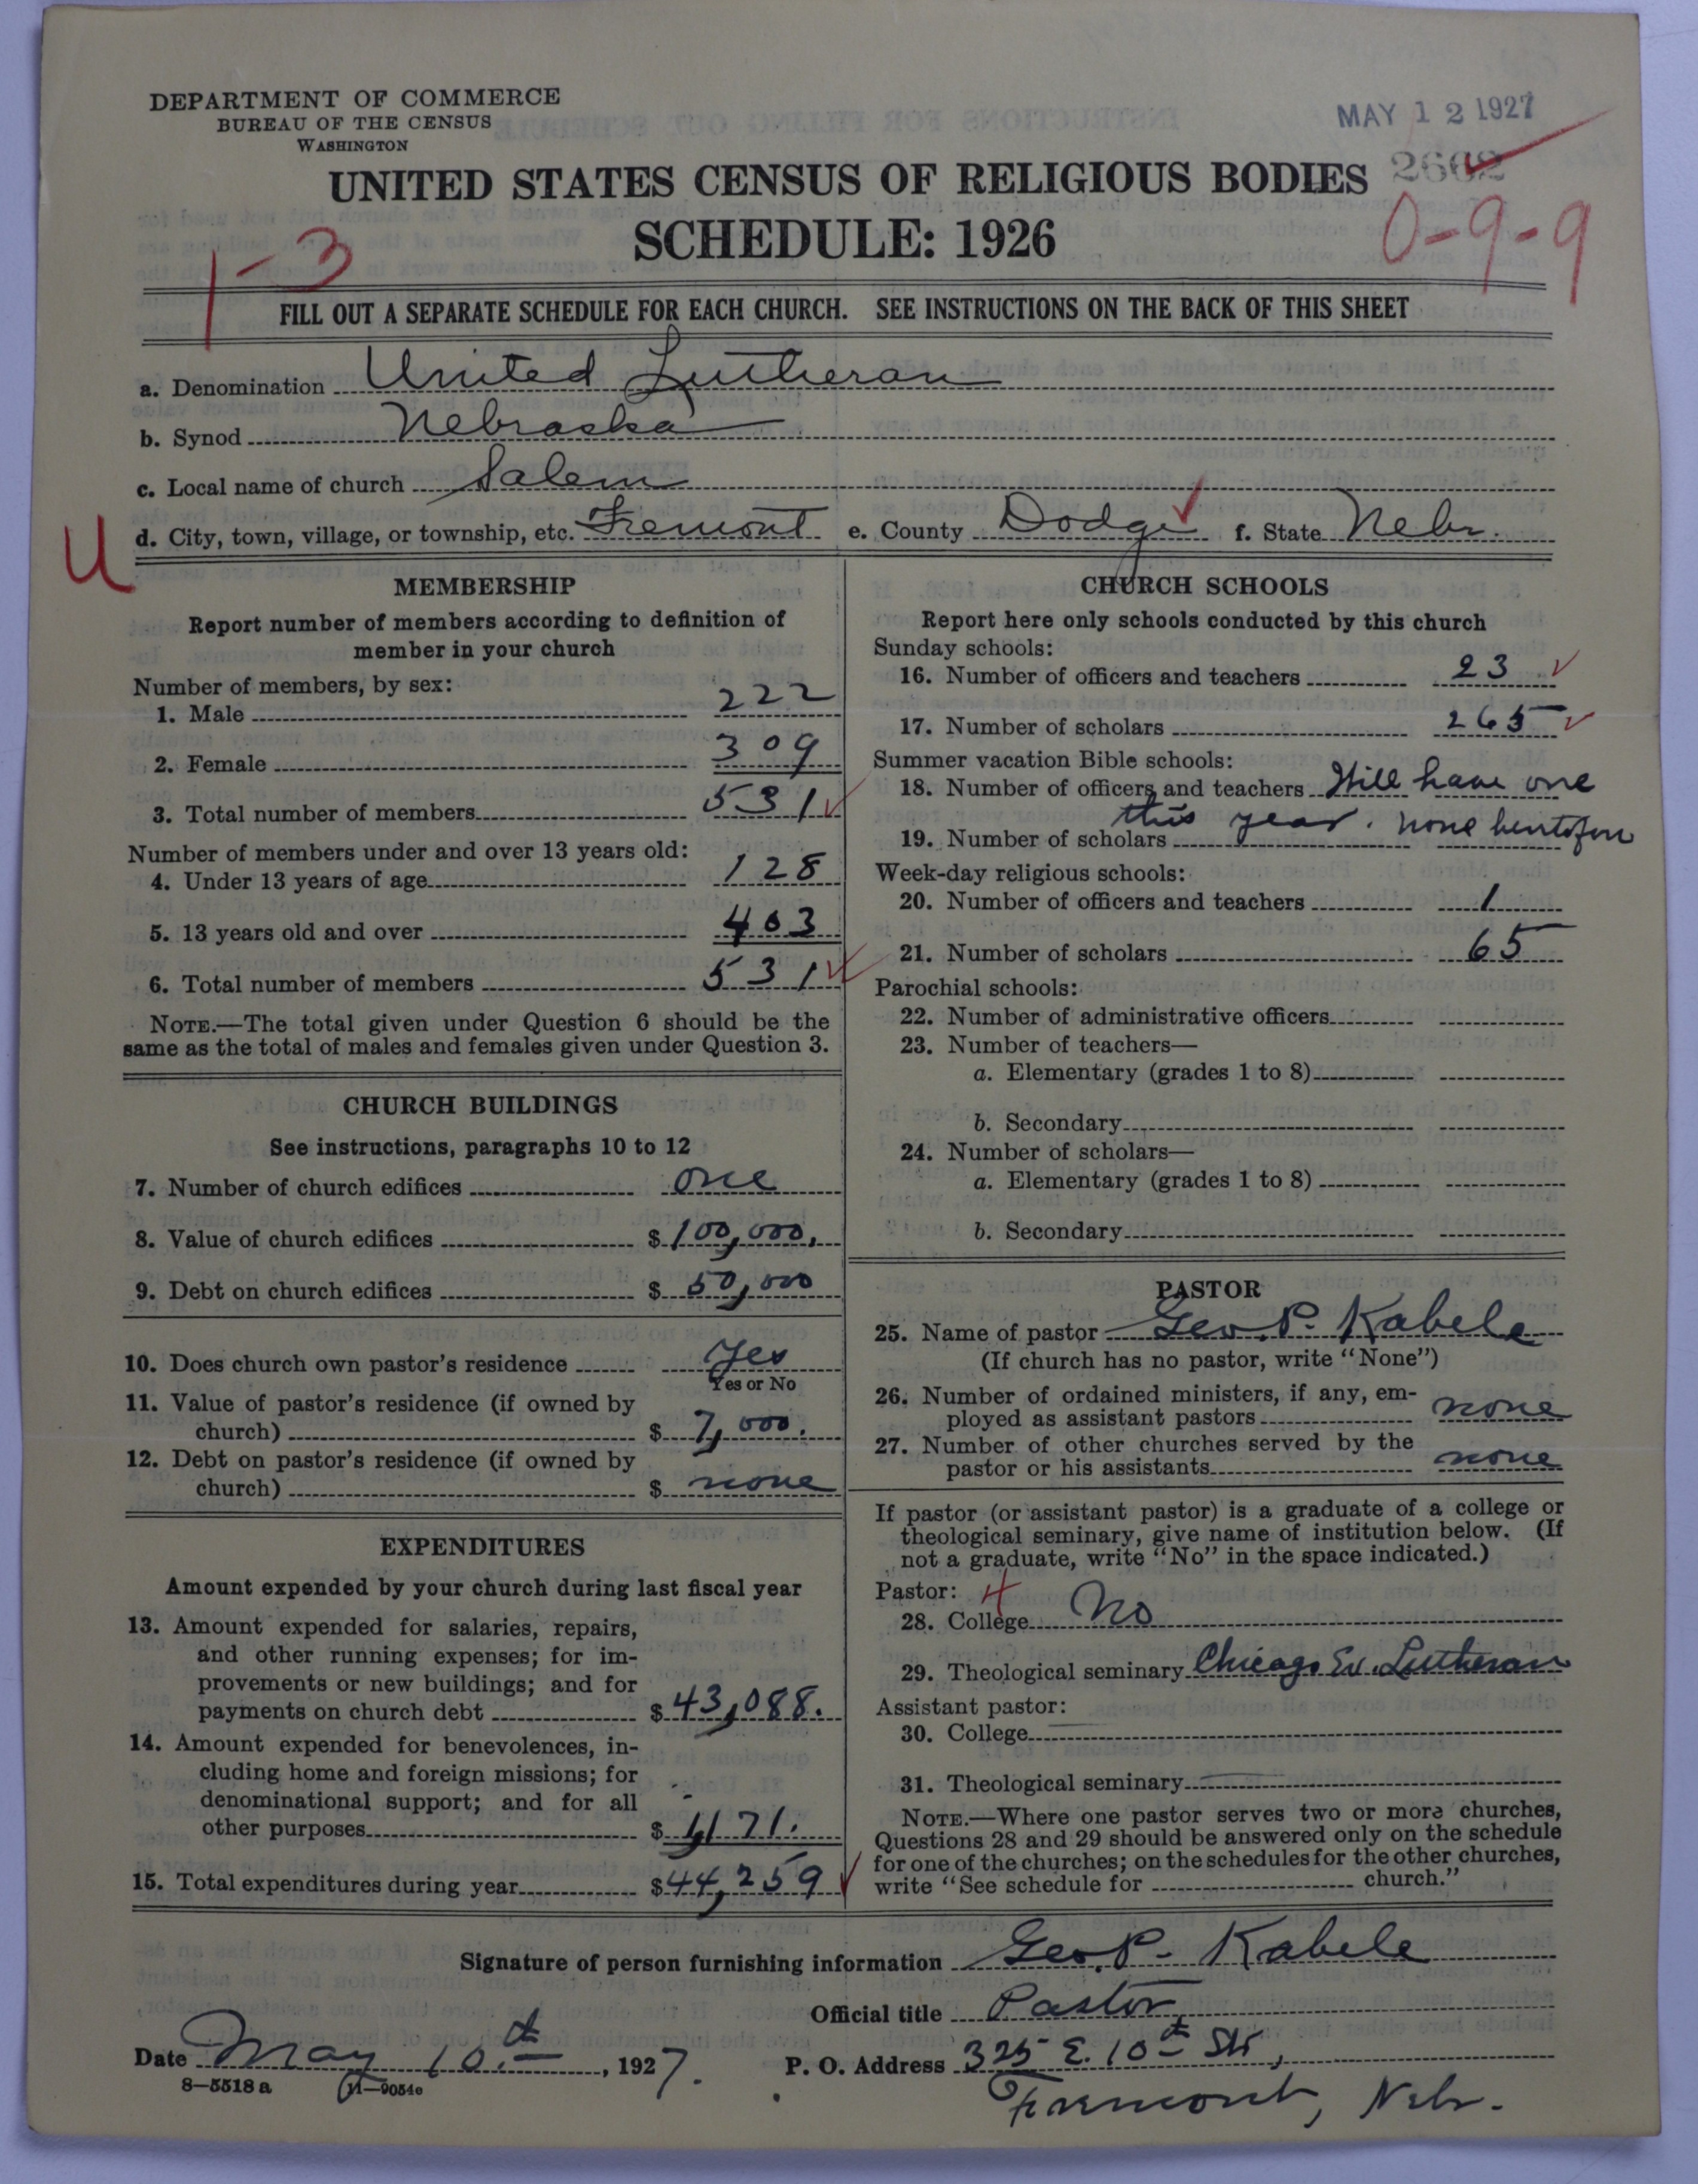 DEPARTMENT OF COMMERCE
BUREAU OF THE CENSUS
WASHINGTON
MAY 12 1927
2662
UNITED STATES CENSUS OF RELIGIOUS BODIES
SCHEDULE: 1926
1-3
0-9-9
FILL OUT A SEPARATE SCHEDULE FOR EACH CHURCH. SEE INSTRUCTIONS ON THE BACK OF THIS SHEET
a. Denomination United Lutheran
b. Synod Nebraska
c. Local name of church Salem
U
d. City, town, village, or township, etc. Fremont e. County Dodge f. State Nebr.
MEMBERSHIP
Report number of members according to definition of
member in your church
Number of members, by sex:
1. Male 222
2. Female 309
3. Total number of members 531
Number of members under and over 13 years old:
4. Under 13 years of age 128
5. 13 years old and over 403
6. Total number of members 531
NOTE.—The total given under Question 6 should be the
same as the total of males and females given under Question 3.
CHURCH BUILDINGS
See instructions, paragraphs 10 to 12
7. Number of church edifices one
8. Value of church edifices $ 100,000.
9. Debt on church edifices $ 50,000
10. Does church own pastor's residence Yes
Yes or No
11. Value of pastor's residence (if owned by
church) $ 7,000.
12. Debt on pastor's residence (if owned by
church) $ none
EXPENDITURES
Amount expended by your church during last fiscal year
13. Amount expended for salaries, repairs,
and other running expenses; for im-
provements or new buildings; and for
payments on church debt $ 43,088.
14. Amount expended for benevolences, in-
cluding home and foreign missions; for
denominational support; and for all
other purposes $ 1,171.
15. Total expenditures during year $ 44,259
CHURCH SCHOOLS
Report here only schools conducted by this church
Sunday schools:
16. Number of officers and teachers 23
17. Number of scholars 265
Summer vacation Bible schools:
18. Number of officers and teachers Will have one
this year. none
19. Number of scholars
Week-day religious schools:
20. Number of officers and teachers 1
21. Number of scholars 65
Parochial schools:
22. Number of administrative officers
23. Number of teachers—
a. Elementary (grades 1 to 8)
b. Secondary
24. Number of scholars—
a. Elementary (grades 1 to 8)
b. Secondary
PASTOR
25. Name of pastor Geo. P. Kabele
(If church has no pastor, write "None")
26. Number of ordained ministers, if any, em-
ployed as assistant pastors none
27. Number of other churches served by the
pastor or his assistants none
If pastor (or assistant pastor) is a graduate of a college or
theological seminary, give name of institution below. (If
not a graduate, write "No" in the space indicated.)
Pastor: 4
28. College No
29. Theological seminary Chicago Ev. Lutheran
Assistant pastor:
30. College
31. Theological seminary
NOTE.—Where one pastor serves two or more churches,
Questions 28 and 29 should be answered only on the schedule
for one of the churches; on the schedules for the other churches,
write "See schedule for church."
Signature of person furnishing information Geo. P. Kabele
Official title Pastor
Date May 10th, 1927. P. O. Address 325 E. 10th Str,
8-5518 a 11-9054e
Fremont, Nebr.